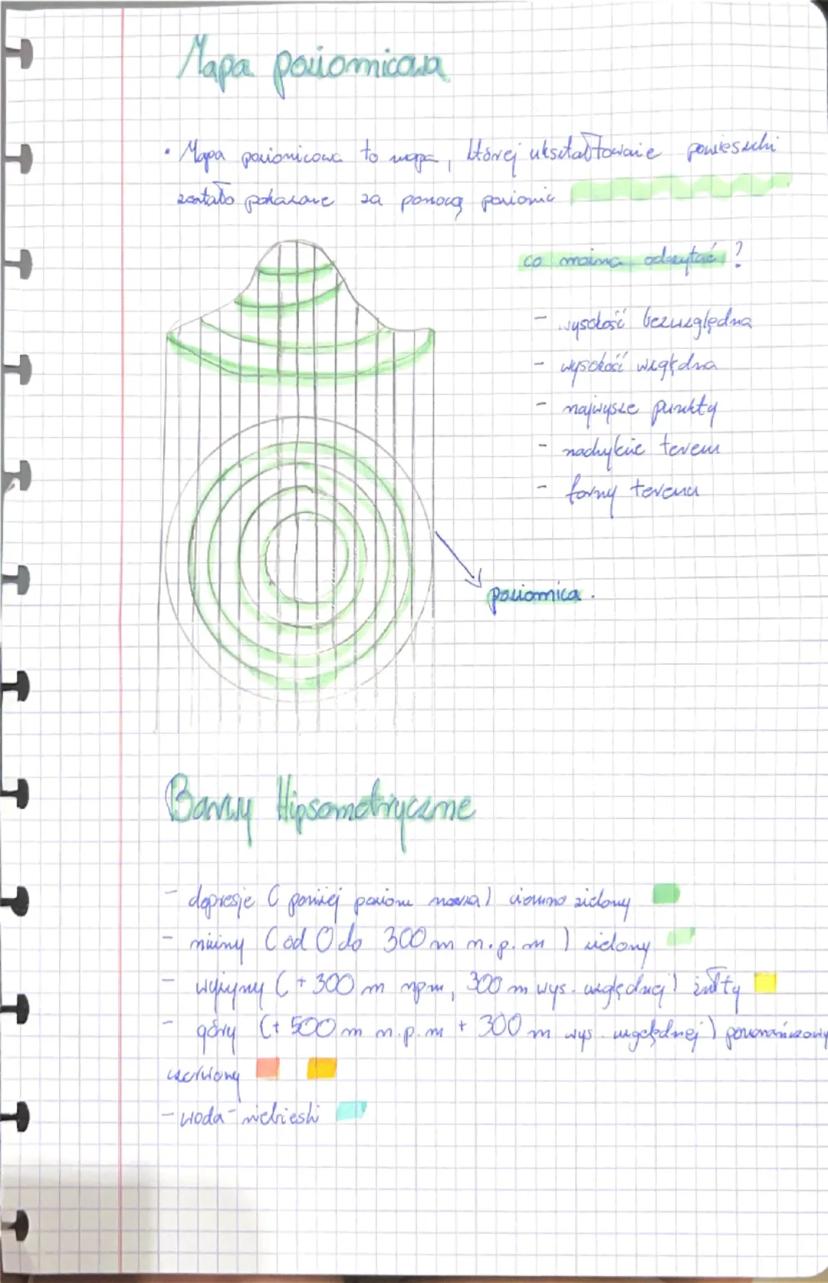 Mapa poziomicowa
• Mapa poziomicowa to mapa, której ukształtowanie powieszchi
zostało pokazane za pomocą poziomic
co można odczytać?
- wysokość bezwzględna
- wysokość względna
- najwysze punkty
- nachylenie terenu
- formy terenu
poziomica.
Barwy Hipsometryczne
- depresje (poniżej poziomu morza) ciemno zielony
- niziny (od 0 do 300 m n.p.m) zielony
- wyżyny (+300 m npm, 300 m wys. względnej) żółty
- góry (+ 500 m n.p.m + 300 m wys. względnej) pomarańczowy
czerwony
- woda - niebieski